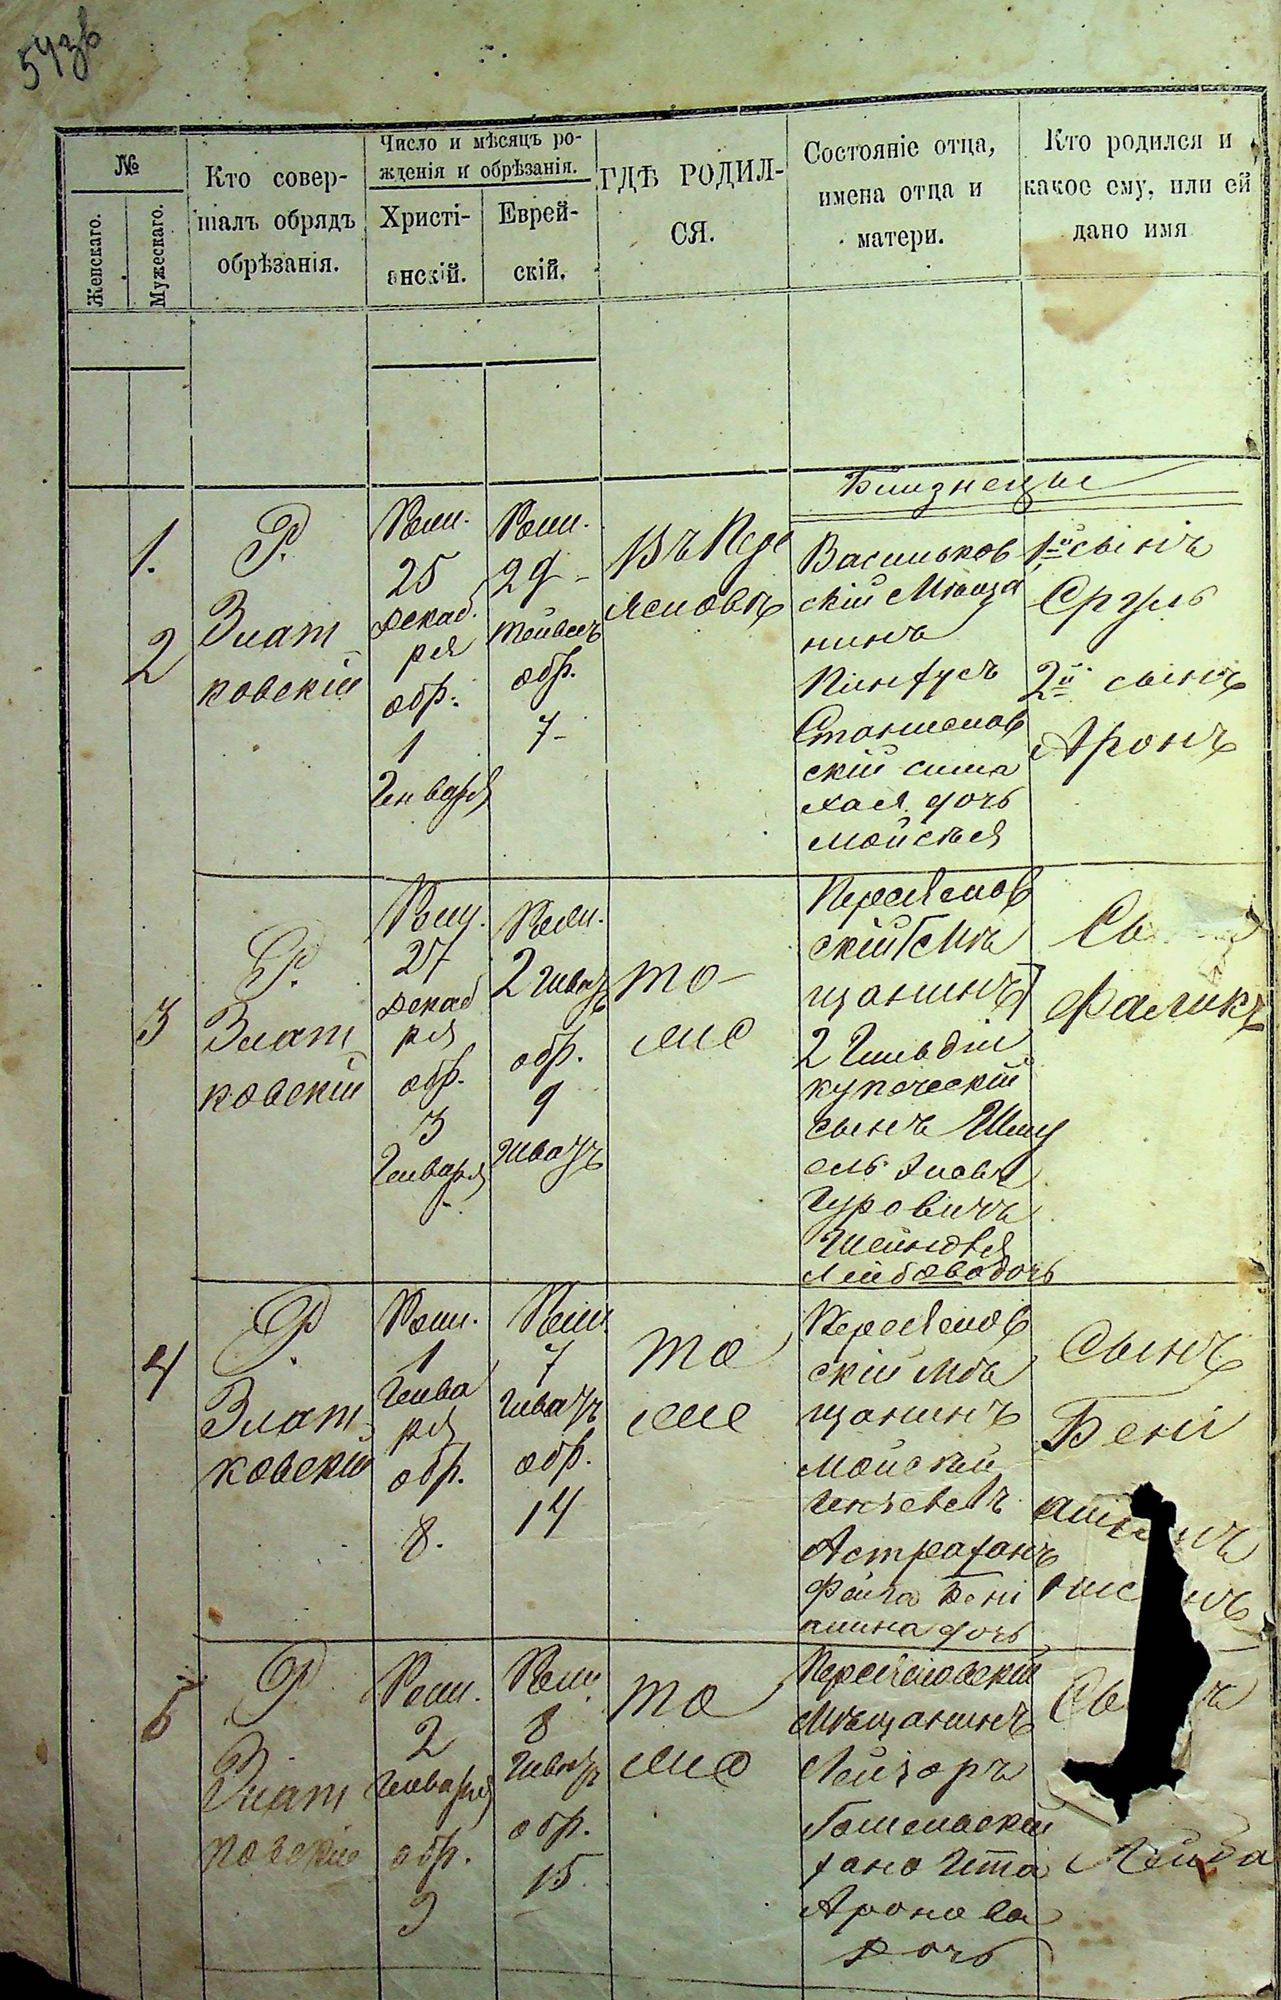 543б
№
Женскаго.
Мужескаго.
Кто совер-
шалъ обрядъ
обрѣзанія.
Число и мѣсяцъ ро-
жденія и обрѣзанія.
Христі-
анскій.
Еврей-
скій.
ГДѢ РОДИЛ-
СЯ.
Состояніе отца,
имена отца и
матери.
Кто родился и
какое ему, или ей
дано имя
Близнецы
1.
2
Р.
Злат
ковскій
25
декаб
ря
обр.
1
Генваря
29
тейвесъ
обр.
7
Въ Пере
яславѣ
Васильков
скій Мѣща
нинъ
Пинхусъ
Станислав
скій сима
хася дочь
Мойсѣя
1й сынъ
Сруль
2й сынъ
Аронъ
3
Р.
Злат
ковскій
27
декаб
ря
обр.
3
Генваря
2 шватъ
обр.
9
шватъ
то
же
Переяслов
скій Мѣ
щанинъ
2 Гильдіи
купеческій
сынъ Шму
ель
Гуровичъ
Шейндля
Лейбова дочь
Сы
Фаликъ
4
Р.
Злат
ковскій
1
Генва
ря
обр.
8.
7
шватъ
обр.
14
то
же
Переяслов
скій Мѣ
щанинъ
Мойсѣй
Астраханъ
Фейга Бені
амина дочь
Сынъ
Бені
5
Р.
Злат
ковскій
2
Генваря
обр.
9
8
шватъ
обр.
15
то
же
Переяславскій
Мѣщанинъ
Лейзоръ
Гомельскій
хана Ита
Аронова
дочь
Сы ъ
Лейба